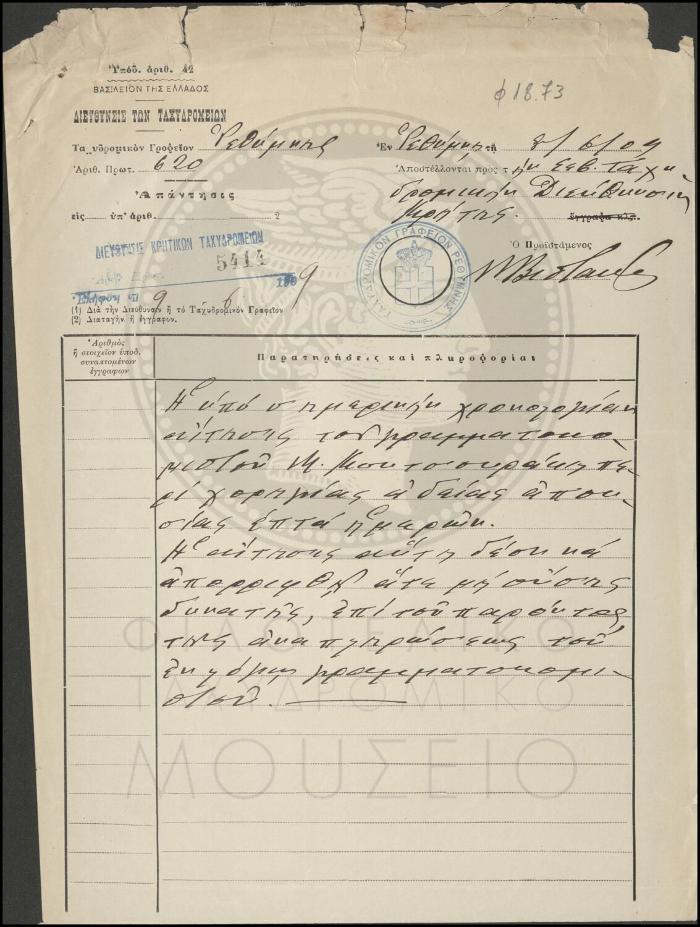 Ὑπόδ. ἀριθ. 42
φ 18.73
ΒΑΣΙΛΕΙΟΝ ΤΗΣ ΕΛΛΑΔΟΣ
ΔΙΕΥΘΥΝΣΙΣ ΤΩΝ ΤΑΧΥΔΡΟΜΕΙΩΝ
Ταχυδρομικὸν Γραφεῖον Ῥεθύμνης
Ἐν Ῥεθύμνῃ τῇ 8/6/09
Ἀριθ. Πρωτ. 620
Ἀποστέλλονται πρὸς τὴν Σεβ. Ταχυ
δρομικὴν Διεύθυνσιν
Κρήτης. ἔγγραφα κλπ.
Ἀπάντησις
εἰς ὑπ' ἀριθ. 2
Ὁ Προϊστάμενος
ΔΙΕΥΘΥΝΣΙΣ ΚΡΗΤΙΚΩΝ ΤΑΧΥΔΡΟΜΕΙΩΝ
5414
Ἐλήφθη τῇ 9 6 1909
ΤΑΧΥΔΡΟΜΙΚΟΝ ΓΡΑΦΕΙΟΝ ΡΕΘΥΜΝΗΣ
(1) Διὰ τὴν Διεύθυνσιν ἢ τὸ Ταχυδρομικὸν Γραφεῖον
(2) Διαταγὴν ἢ ἔγγραφον.
Ἀριθμὸς
ἢ στοιχεῖον ὑποδ.
συναπτομένων
ἐγγράφων
Παρατηρήσεις καὶ πληροφορίαι
Ἡ ὑπὸ σημερινὴν χρονολογίαν
αἴτησις τοῦ γραμματοκο-
μιστοῦ Μ. Κουτσουράκη πε
ρὶ χορηγίας ἀδείας ἀπου
σίας ἑπτὰ ἡμερῶν.
Ἡ αἴτησις αὕτη δέον νὰ
ἀπορριφθῇ ἅτε μὴ οὔσης
δυνατῆς, ἐπὶ τοῦ παρόντος
τῆς ἀναπληρώσεως τοῦ
ἐν λόγῳ γραμματοκομι-
στοῦ.
ΦΙΛΟΤΕΛΙΚΟ
ΤΑΧΥΔΡΟΜΙΚΟ
ΜΟΥΣΕΙΟ